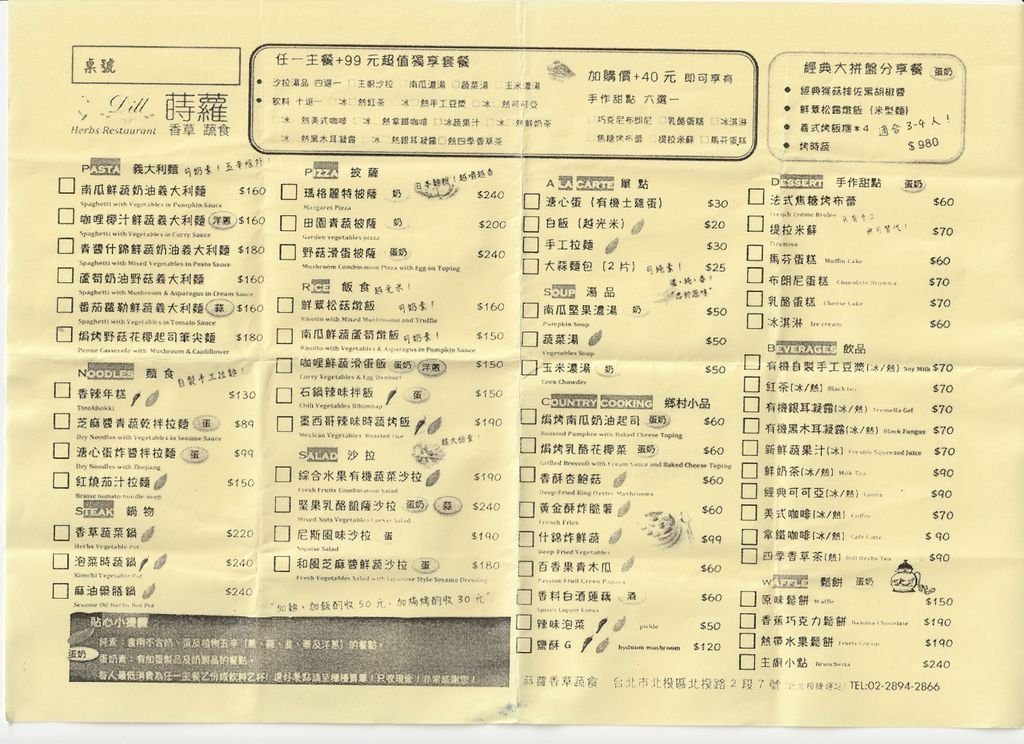 桌號
Dill 蒔蘿
Herbs Restaurant 香草 蔬食
任一主餐+99 元超值獨享套餐
沙拉湯品 四選一 □主廚沙拉 □南瓜濃湯 □蔬菜湯 □玉米濃湯
飲料 十選一 □冰 □熱紅茶 □冰 □熱手工豆漿 □冰 □熱可可亞
□冰 □熱美式咖啡 □冰 □熱拿鐵咖啡 □冰蔬果汁 □冰 □熱鮮奶茶
□冰 □熱黑木耳凝露 □冰 □熱銀耳凝露 □熱四季香草茶
加購價+40 元 即可享有
手作甜點 六選一
□巧克尼布朗尼 □乳酪蛋糕 □冰淇淋
□焦糖烤布蕾 □提拉米蘇 □馬芬蛋糕
經典大拼盤分享餐 蛋奶
經典猴菇排佐黑胡椒醬
鮮蕈松露燉飯 (米型麵)
義式烤飯糰*4 適合3-4人!
烤時蔬 $980
PASTA 義大利麵 可奶素!五辛除外!
南瓜鮮蔬奶油義大利麵 $160
Spaghetti with Vegetables in Pumpkin Sauce
咖哩椰汁鮮蔬義大利麵 洋蔥 $160
Spaghetti with Vegetables in Curry Sauce
青醬什錦鮮蔬奶油義大利麵 $180
Spaghetti with Mixed Vegetables in Pesto Sauce
蘆筍奶油野菇義大利麵 $160
Spaghetti with Mushroom & Asparagus in Cream Sauce
番茄蘿勒鮮蔬義大利麵 蒜 $160
Spaghetti with Vegetables in Tomato Sauce
焗烤野菇花椰起司筆尖麵 $180
Penne Casserole with Mushroom & Cauliflower
NOODLES 麵食 自製手工拉麵!
香辣年糕 $130
Tteokbokki
芝麻醬青蔬乾拌拉麵 蛋 $89
Dry Noodles with Vegetables in Sesame Sauce
溏心蛋炸醬拌拉麵 蛋 $99
Dry Noodles with Zhajiang
紅燒茄汁拉麵 $150
Braise tomato noodle soup
STEAK 鍋物
香草蔬菜鍋 $220
Herbs Vegetable Pot
泡菜時蔬鍋 $240
Kimchi Vegetable Pot
麻油藥膳鍋 $240
Sesame Oil Herbs Hot Pot
PIZZA 披薩
瑪格麗特披薩 奶 日本麵粉!越嚼越香 $240
Margaret Pizza
田園青蔬披薩 奶 $200
Garden vegetables pizza
野菇滑蛋披薩 蛋奶 $240
Mushroom Combination Pizza with Egg on Toping
RICE 飯食 越光米!
鮮蕈松菇燉飯 可奶素! $160
Risotto with Mixed Mushrooms and Truffle
南瓜鮮蔬蘆筍燉飯 可奶素! $150
Risotto with Vegetables & Asparagus in Pumpkin Sauce
咖哩鮮蔬滑蛋飯 蛋奶 洋蔥 $150
Curry Vegetables & Egg Donburi
石鍋辣味拌飯 蛋 $150
Chili Vegetables Bibimbap
墨西哥辣味時蔬烤飯 $190
Mexican Vegetables Roasted rice
SALAD 沙拉 超大份量!
綜合水果有機蔬菜沙拉 $190
Fresh Fruits Combination Salad
堅果乳酪凱薩沙拉 蛋奶 蒜 $240
Mixed Nuts Vegetables Caesar Salad
尼斯園味沙拉 蛋 $190
Niçoise Salad
和風芝麻醬鮮蔬沙拉 蛋 $180
Fresh Vegetables Salad with Japanese Style Sesame Dressing
"加麵、加飯酌收 50 元、加焗烤酌收 30 元"
A LA CARTE 單點
溏心蛋 (有機土雞蛋) $30
白飯 (越光米) $20
手工拉麵 $30
大蒜麵包 (2 片) 可純素! $25
SOUP 湯品 濃、純、香!
南瓜堅果濃湯 奶 $50
Pumpkin Soup
蔬菜湯 $50
Vegetables Soup
玉米濃湯 奶 $50
Corn Chowder
COUNTRY COOKING 鄉村小品
焗烤南瓜奶油起司 蛋奶 $60
Roasted Pumpkin with Baked Cheese Toping
焗烤乳酪花椰菜 蛋奶 $60
Grilled Broccoli with Cream Sauce and Baked Cheese Toping
香酥杏鮑菇 $60
Deep-Fried King Oyster Mushrooms
黃金酥炸脆薯 $60
French Fries
什錦炸鮮蔬 $99
Deep-Fried Vegetables
百香果青木瓜 $60
Passion Fruit Green Papaya
香料白酒蓮藕 酒 $60
Spices Liquor Lotus
辣味泡菜 pickle $50
鹽酥 G hydnum mushroom $120
DESSERT 手作甜點 蛋奶
法式焦糖烤布蕾 $60
French Crème Brulee
提拉米蘇 $70
Tiramisu
馬芬蛋糕 Muffin Cake $60
布朗尼蛋糕 Chocolate Brownie $70
乳酪蛋糕 Cheese Cake $70
冰淇淋 Ice cream $60
BEVERAGES 飲品
有機自製手工豆漿(冰/熱) Soy Milk $70
紅茶(冰/熱) Black tea $70
有機銀耳凝露(冰/熱) Tremella Gel $70
有機黑木耳凝露(冰/熱) Black Fungus $70
新鮮蔬果汁(冰) Freshly Squeezed Juice $70
鮮奶茶(冰/熱) Milk Tea $90
經典可可亞(冰/熱) Cocoa $90
美式咖啡(冰/熱) Coffee $70
拿鐵咖啡(冰/熱) Cafe Latte $ 90
四季香草茶(熱) Dill Herbs Tea $ 90
WAFFLE 鬆餅 蛋奶
原味鬆餅 Waffle $150
香蕉巧克力鬆餅 Banana Chocolate $190
熱帶水果鬆餅 Fruits Cream $190
主廚小點 Bruschetta $240
貼心小提醒
純素：食用不含奶、蛋及植物五辛 (蔥、蒜、韭、蕎及洋蔥) 的餐點。
蛋奶 蛋奶素：有加蛋製品及奶製品的餐點。
每人最低消費為任一主餐乙份或飲料乙杯! 還村餐點請至櫃檯買單! 只收現金! 非常感謝您!
蒔蘿香草蔬食 台北市北投區北投路 2 段 7 號 (近北投捷運站) TEL:02-2894-2866